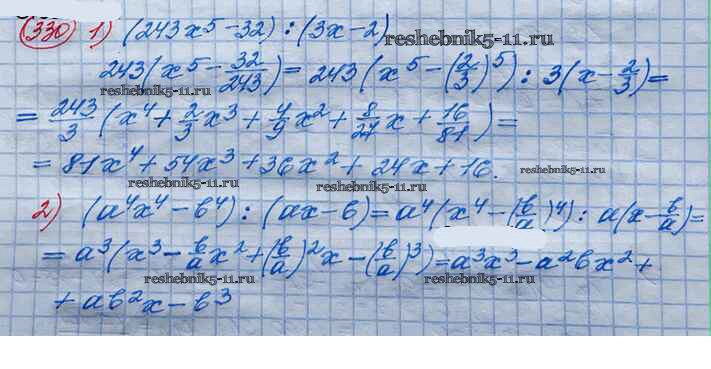 330 1) (243x⁵-32) : (3x-2) reshebnik5-11.ru
243(x⁵ - 32/243) = 243(x⁵ - (2/3)⁵) : 3(x - 2/3) =
reshebnik5-11.ru
= 243/3 (x⁴ + 2/3x³ + 4/9x² + 8/27x + 16/81) =
= 81x⁴ + 54x³ + 36x² + 24x + 16. reshebnik5-11.ru
reshebnik5-11.ru reshebnik5-11.ru
2) (a⁴x⁴ - b⁴) : (ax - b) = a⁴(x⁴ - (b/a)⁴) : a(x - b/a) =
= a³(x³ - b/a x² + (b/a)²x - (b/a)³) = a³x³ - a²bx² +
reshebnik5-11.ru reshebnik5-11.ru
+ ab²x - b³